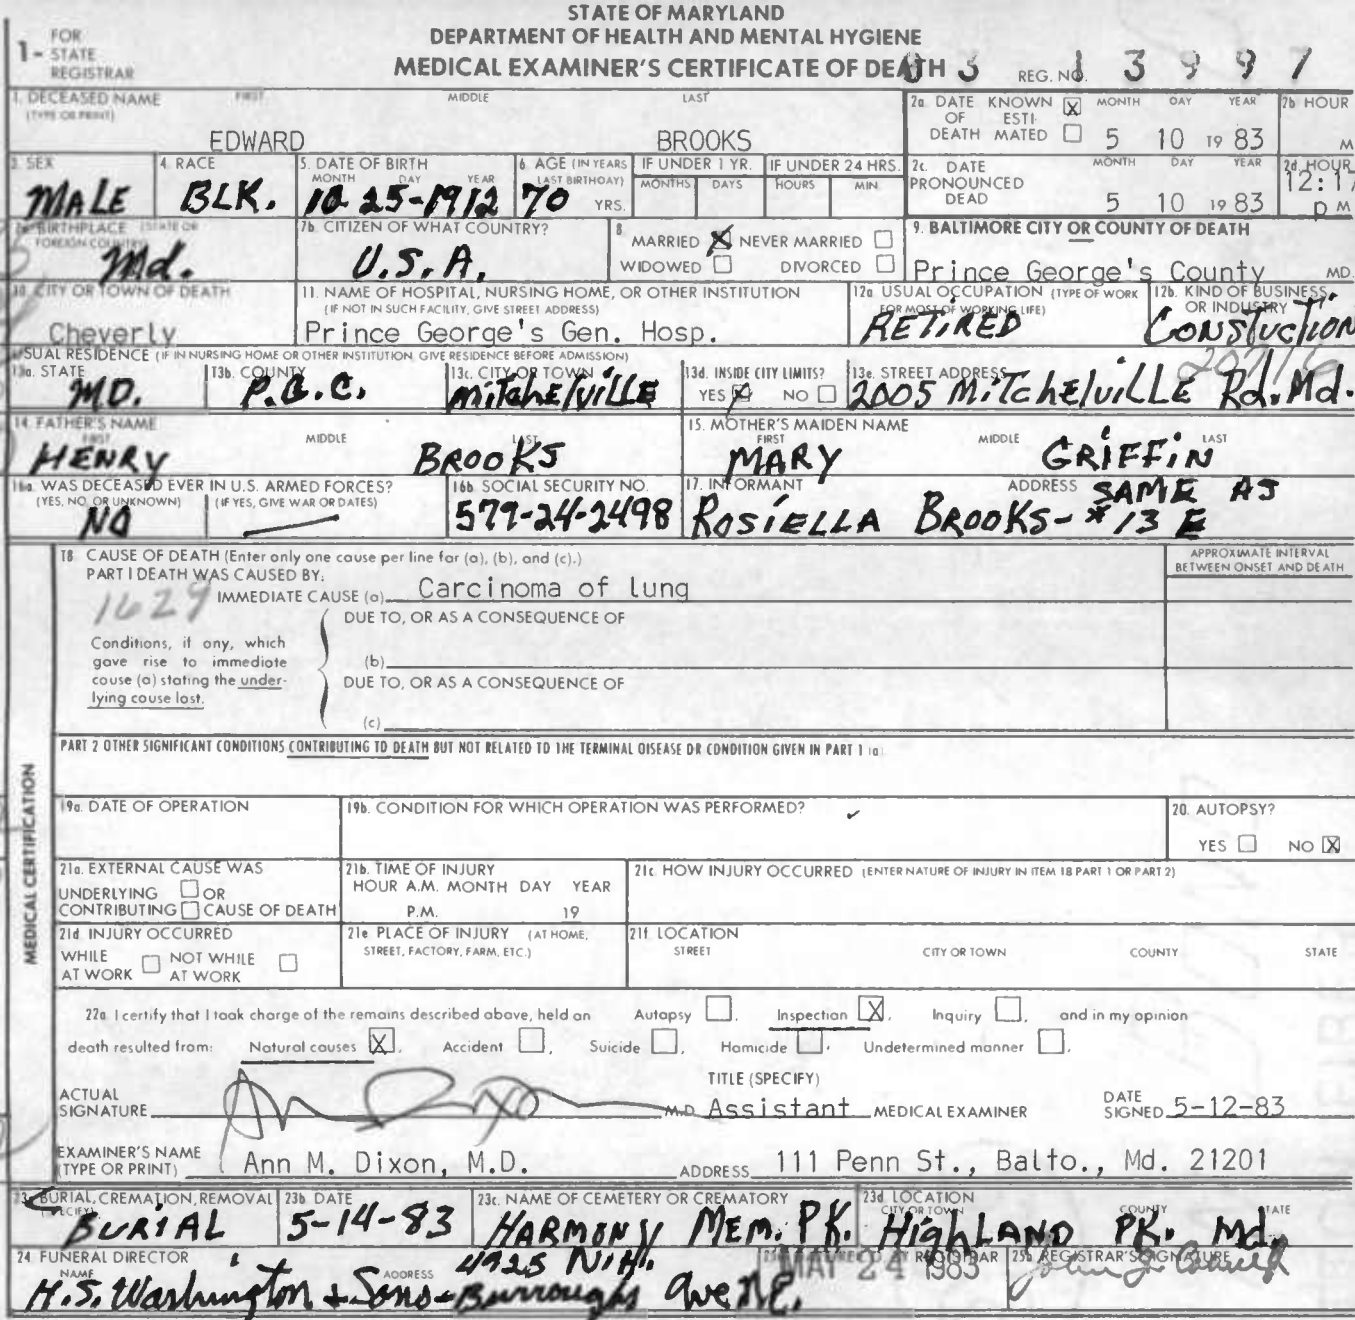 STATE OF MARYLAND
DEPARTMENT OF HEALTH AND MENTAL HYGIENE
MEDICAL EXAMINER'S CERTIFICATE OF DEATH
1- FOR STATE REGISTRAR
REG. NO. 83 13997
1. DECEASED NAME (TYPE OR PRINT) FIRST MIDDLE LAST
EDWARD BROOKS
2a. DATE OF DEATH KNOWN X ESTIMATED MONTH DAY YEAR 5 10 19 83
2b HOUR M
3. SEX MALE
4. RACE BLK.
5. DATE OF BIRTH MONTH DAY YEAR 10 25-1912
6. AGE (IN YEARS LAST BIRTHDAY) 70 YRS.
IF UNDER 1 YR. MONTHS DAYS
IF UNDER 24 HRS. HOURS MIN.
2c. DATE PRONOUNCED DEAD MONTH DAY YEAR 5 10 19 83
2d. HOUR 12:17 p M
7a. BIRTHPLACE (STATE OR FOREIGN COUNTRY) Md.
7b. CITIZEN OF WHAT COUNTRY? U.S.A.
8 MARRIED X NEVER MARRIED
WIDOWED DIVORCED
9. BALTIMORE CITY OR COUNTY OF DEATH
Prince George's County MD.
10. CITY OR TOWN OF DEATH Cheverly
11. NAME OF HOSPITAL, NURSING HOME, OR OTHER INSTITUTION
(IF NOT IN SUCH FACILITY, GIVE STREET ADDRESS)
Prince George's Gen. Hosp.
12a USUAL OCCUPATION (TYPE OF WORK FOR MOST OF WORKING LIFE) RETIRED
12b. KIND OF BUSINESS OR INDUSTRY CONSTUCTION
USUAL RESIDENCE (IF IN NURSING HOME OR OTHER INSTITUTION, GIVE RESIDENCE BEFORE ADMISSION)
13a. STATE MD.
13b. COUNTY P.G.C.
13c. CITY OR TOWN MiTchelviLLE
13d. INSIDE CITY LIMITS? YES X NO
13e. STREET ADDRESS 2005 MiTchElviLLE Rd. Md.
20716
14. FATHER'S NAME FIRST MIDDLE LAST
HENRY BROOKS
15. MOTHER'S MAIDEN NAME FIRST MIDDLE LAST
MARY GRIFFIN
16a. WAS DECEASED EVER IN U.S. ARMED FORCES?
(YES, NO, OR UNKNOWN) (IF YES, GIVE WAR OR DATES)
NO
16b. SOCIAL SECURITY NO. 579-24-2498
17. INFORMANT ADDRESS
ROSIELLA BROOKS- SAME AS #13 E
MEDICAL CERTIFICATION
18 CAUSE OF DEATH (Enter only one cause per line for (a), (b), and (c).)
PART I DEATH WAS CAUSED BY:
APPROXIMATE INTERVAL BETWEEN ONSET AND DEATH
1629
IMMEDIATE CAUSE (a) Carcinoma of lung
DUE TO, OR AS A CONSEQUENCE OF
Conditions, if any, which gave rise to immediate cause (a) stating the underlying cause last.
(b)
DUE TO, OR AS A CONSEQUENCE OF
(c)
PART 2 OTHER SIGNIFICANT CONDITIONS CONTRIBUTING TO DEATH BUT NOT RELATED TO THE TERMINAL DISEASE OR CONDITION GIVEN IN PART 1 (a)
19a. DATE OF OPERATION
19b. CONDITION FOR WHICH OPERATION WAS PERFORMED?
20. AUTOPSY?
YES NO X
21a. EXTERNAL CAUSE WAS
UNDERLYING OR
CONTRIBUTING CAUSE OF DEATH
21b. TIME OF INJURY
HOUR A.M. MONTH DAY YEAR
P.M. 19
21c. HOW INJURY OCCURRED (ENTER NATURE OF INJURY IN ITEM 18 PART 1 OR PART 2)
21d INJURY OCCURRED
WHILE AT WORK NOT WHILE AT WORK
21e PLACE OF INJURY (AT HOME, STREET, FACTORY, FARM, ETC.)
21f. LOCATION
STREET CITY OR TOWN COUNTY STATE
22a I certify that I took charge of the remains described above, held an Autopsy , Inspection X , Inquiry , and in my opinion
death resulted from: Natural causes X , Accident , Suicide , Homicide , Undetermined manner .
ACTUAL SIGNATURE M.D.
TITLE (SPECIFY)
Assistant MEDICAL EXAMINER
DATE SIGNED 5-12-83
EXAMINER'S NAME (TYPE OR PRINT) Ann M. Dixon, M.D.
ADDRESS 111 Penn St., Balto., Md. 21201
23a. BURIAL, CREMATION, REMOVAL (SPECIFY) BURIAL
23b DATE 5-14-83
23c. NAME OF CEMETERY OR CREMATORY HARMONY MEM. PK.
23d. LOCATION CITY OR TOWN COUNTY STATE
HighLAND PK. Md.
24 FUNERAL DIRECTOR NAME ADDRESS
H.S. Washington & Sons- 4925 N.H. Burroughs Ave N.E.
MAY 24 1983
25b REGISTRAR'S SIGNATURE